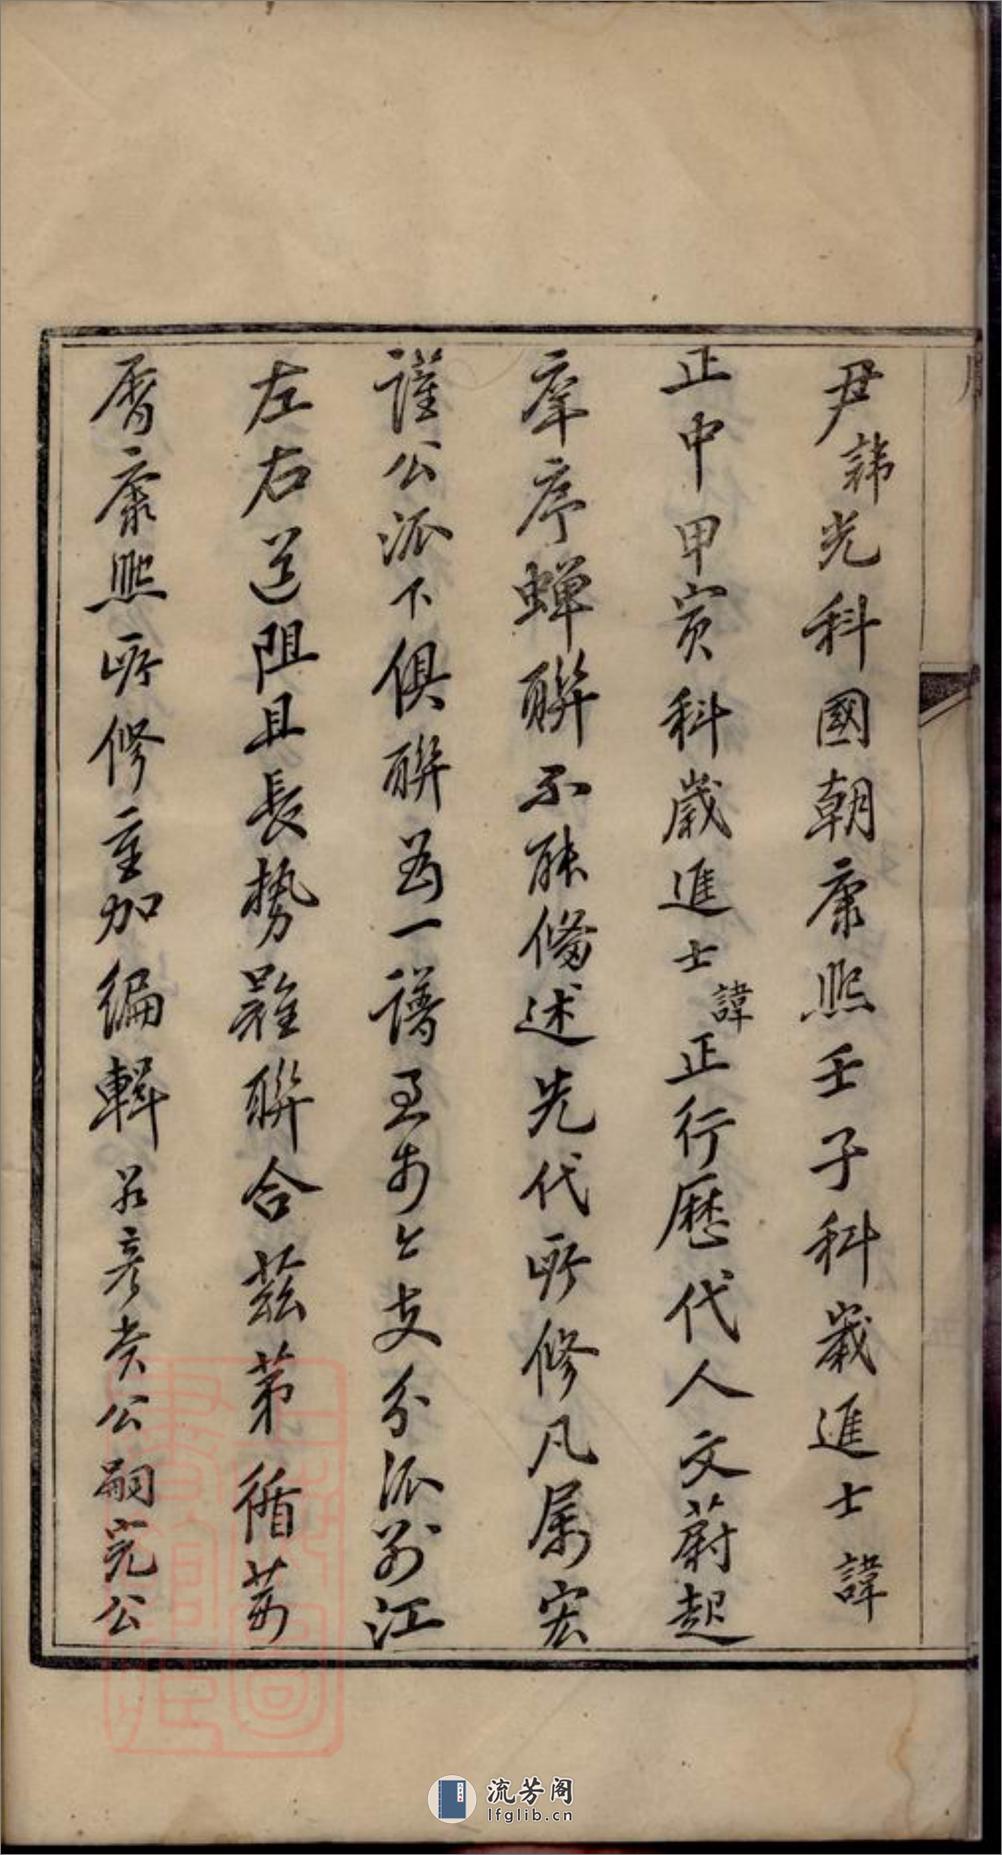 尹諱光科國朝康熙壬子科歲進士諱
正中甲寅科歲進士諱正行歷代人文蔚起
庠序蟬聯不能備述先代所修凡屬宏
謹公派下俱聯為一譜至於今支分派別江
左右道阻且長勢難聯合茲第循萬
曆康熙所修重加編輯於彥公嗣完公
流芳阁
lfglib.cn